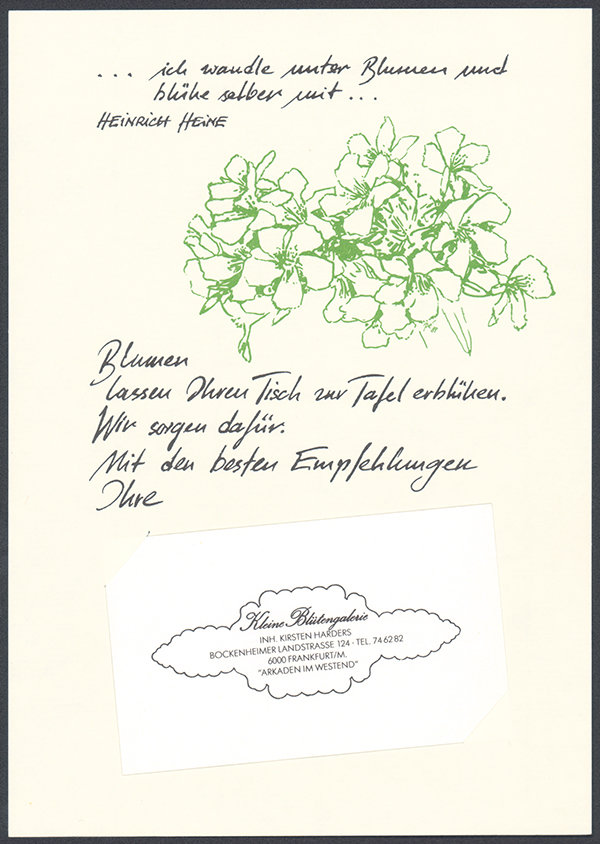 ... ich wandle unter Blumen und
blühe selber mit...
HEINRICH HEINE
Blumen
lassen Ihren Tisch zur Tafel erblühen.
Wir sorgen dafür.
Mit den besten Empfehlungen
Ihre
Kleine Blütengalerie
INH. KIRSTEN HARDERS
BOCKENHEIMER LANDSTRASSE 124 · TEL. 74 62 82
6000 FRANKFURT/M.
"ARKADEN IM WESTEND"